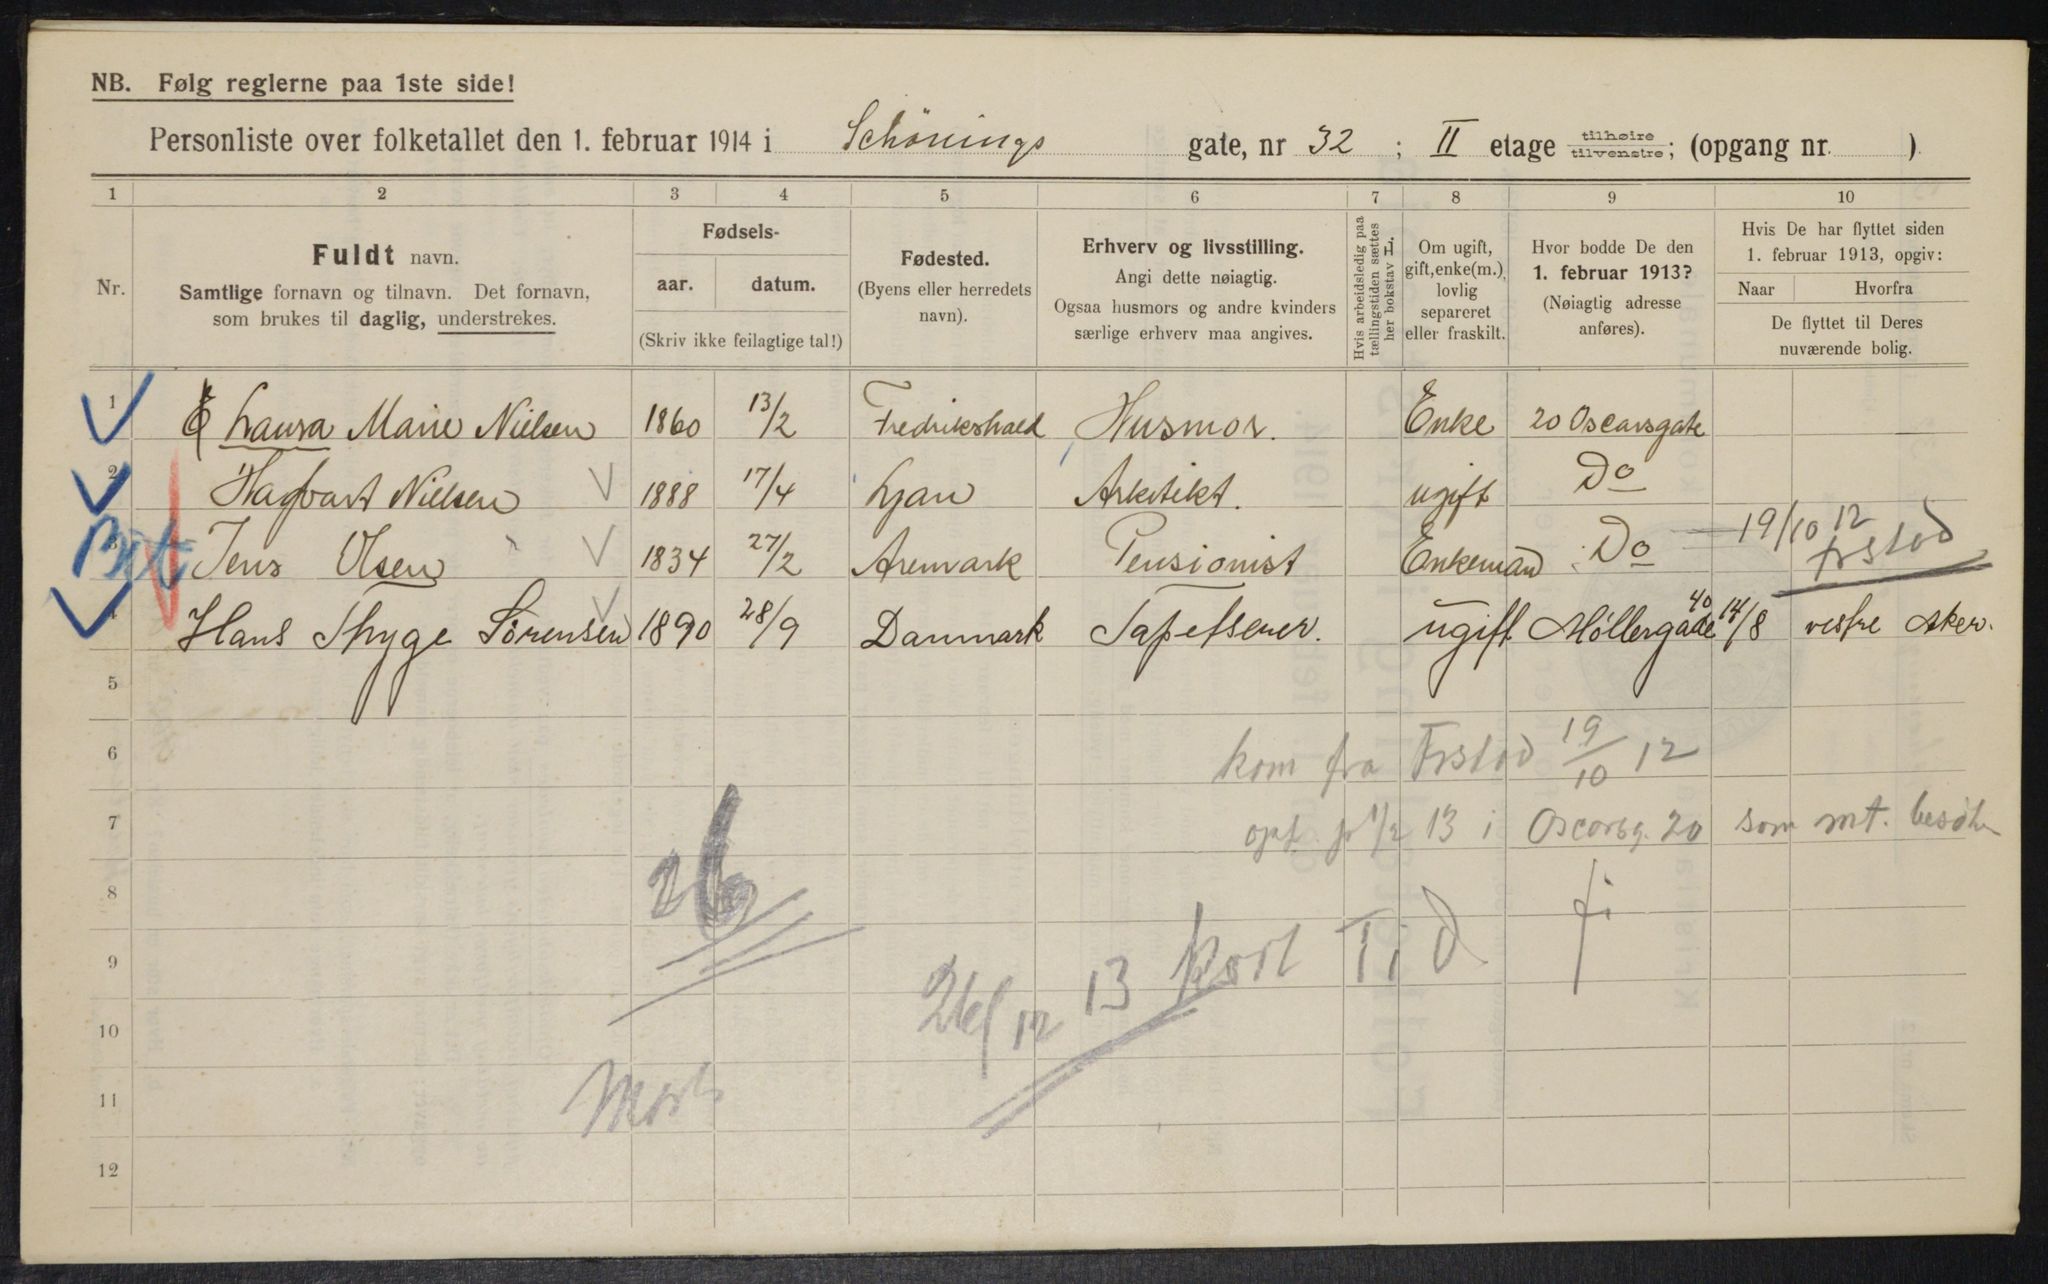 NB. Følg reglerne paa 1ste side!
Personliste over folketallet den 1. februar 1914 i Schønings gate, nr 32 ; II etage tilhøire tilvenstre; (opgang nr. )
1 2 3 4 5 6 7 8 9 10
Nr.
Fuldt navn.
Samtlige fornavn og tilnavn. Det fornavn,
som brukes til daglig, understrekes.
Fødsels-
aar. datum.
(Skriv ikke feilagtige tal!)
Fødested.
(Byens eller herredets
navn).
Erhverv og livsstilling.
Angi dette nøiagtig.
Ogsaa husmors og andre kvinders
særlige erhverv maa angives.
Hvis arbeidsledig paa
tællingstiden sættes
her bokstav L.
Om ugift,
gift, enke(m.),
lovlig
separeret
eller fraskilt.
Hvor bodde De den
1. februar 1913?
(Nøiagtig adresse
anføres).
Hvis De har flyttet siden
1. februar 1913, opgiv:
Naar Hvorfra
De flyttet til Deres
nuværende bolig.
1 Laura Marie Nielsen 1860 13/2 Fredrikshald Husmor. Enke 20 Oscarsgate
2 Hagbart Nielsen 1888 17/4 Ljan Arkitekt. ugift Do
3 Jens Olsen 1834 27/2 Aremark Pensionist Enkemand Do 19/10 12 Frstad
4 Hans Thyge Sørensen 1890 28/9 Danmark Tapetserer. ugift Møllergade 40 14/8 vestre Aker.
5
6 kom fra Frstad 19/10 12
7 opf. p 1/2 13 i Oscarsg. 20 som mt. besøk
8 26
9 26/12 13 kort Tid
10
11
12